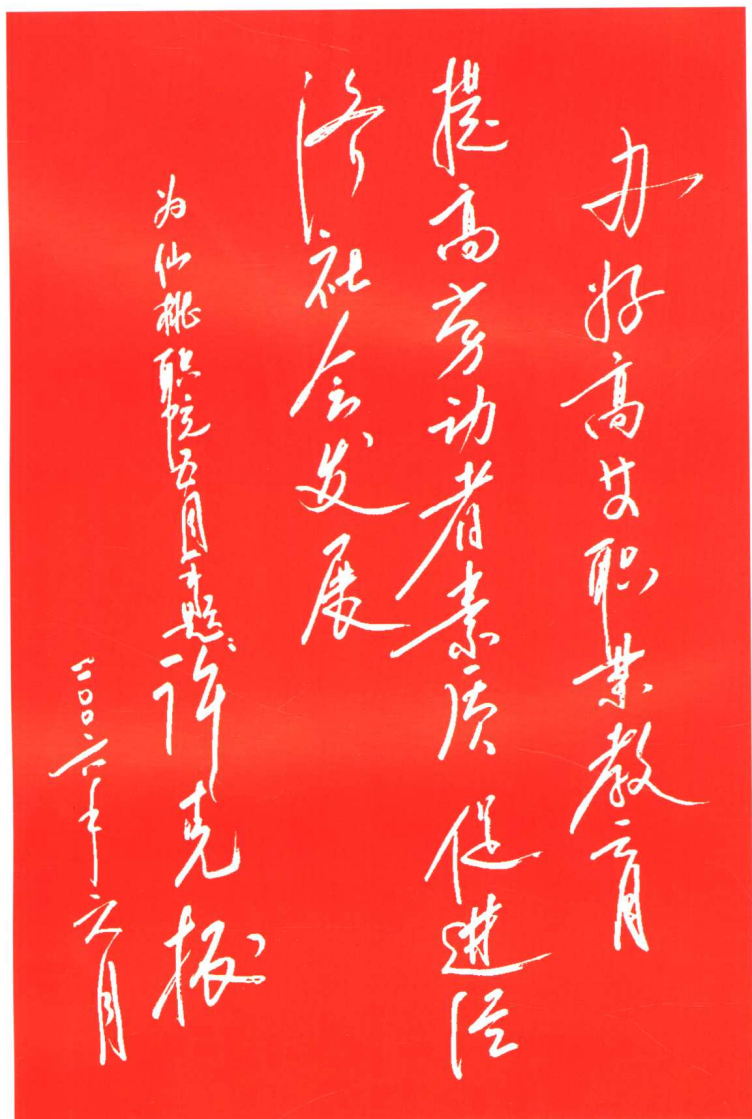 办好高女职业教育
提高劳动者素质 促进经
济社会发展
为仙桃职院五周年题
许克振
二〇〇六年六月